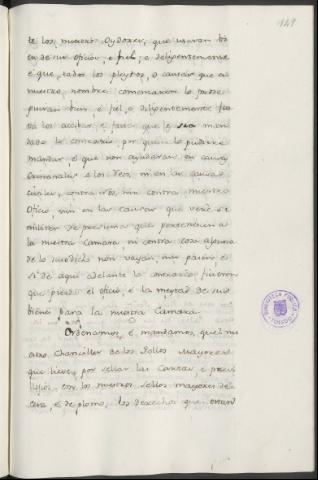 149
te los nuestros Oydores, que usaran to
en de sus oficios, e fiel, e deligentemente
e que todos los pleytos, o causas que en
nuestro nombre comenzaren lo prose
guiran bien, e fiel, e deligentemente fas
ta los acabar, e facer que le sea man
dado lo contrario por quien lo pudiere
mandar, e que non ayudaran en causas
Criminales a los Reos, ni en las causas
civiles, contra nos, nin contra nuestro
Oficio, nin en las causas que
a la nuestra Camara, ni contra cosa alguna
de lo susodicho non vayan, nin pasen, e
si de aqui adelante lo contrario ficieren
que pierdan el oficio, e la meytad de sus
bienes para la nuestra Camara.
Ordenamos, e mandamos, que el nu
estro Chanciller de los Sellos Mayores
que lieve, por sellar las Cartas, e previ
llejos, con los nuestros sellos mayores de
cera, e de plomo, los derechos que estan
BIBLIOTECA PUBLICA